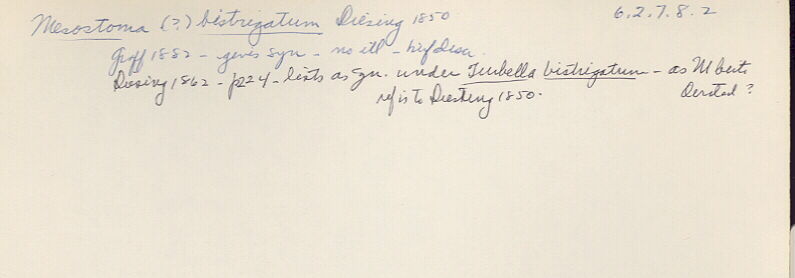 Mesostoma (?) bistrigatum Diesing 1850 6.2.7.8.2
Graff 1882 - gives syn - no ill - brief descr.
Diesing 1862 - p224 - lists as syn. under Turbella bistrigatum - as M
ref is to Diesing 1850. Oersted ?